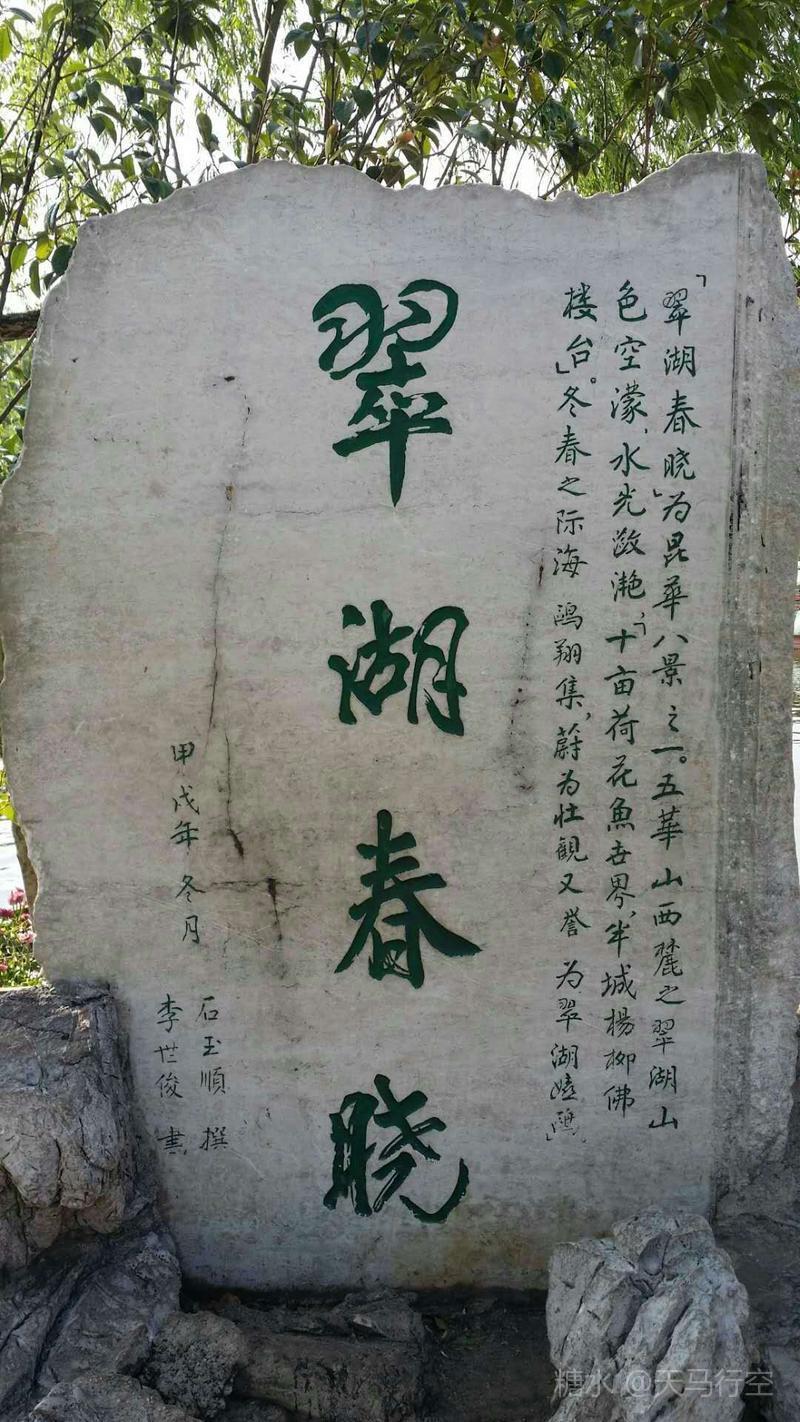 「翠湖春晓」为昆華八景之一。五華山西麓之翠湖山
色空濛、水光潋滟，「十亩荷花魚世界，半城楊柳佛
楼台」。冬春之际海鸥翔集，蔚为壮觀又誉为翠湖嬉鷗」
翠湖春晓
甲戌年冬月
石玉順 撰
李世俊 書
糖水 @天马行空